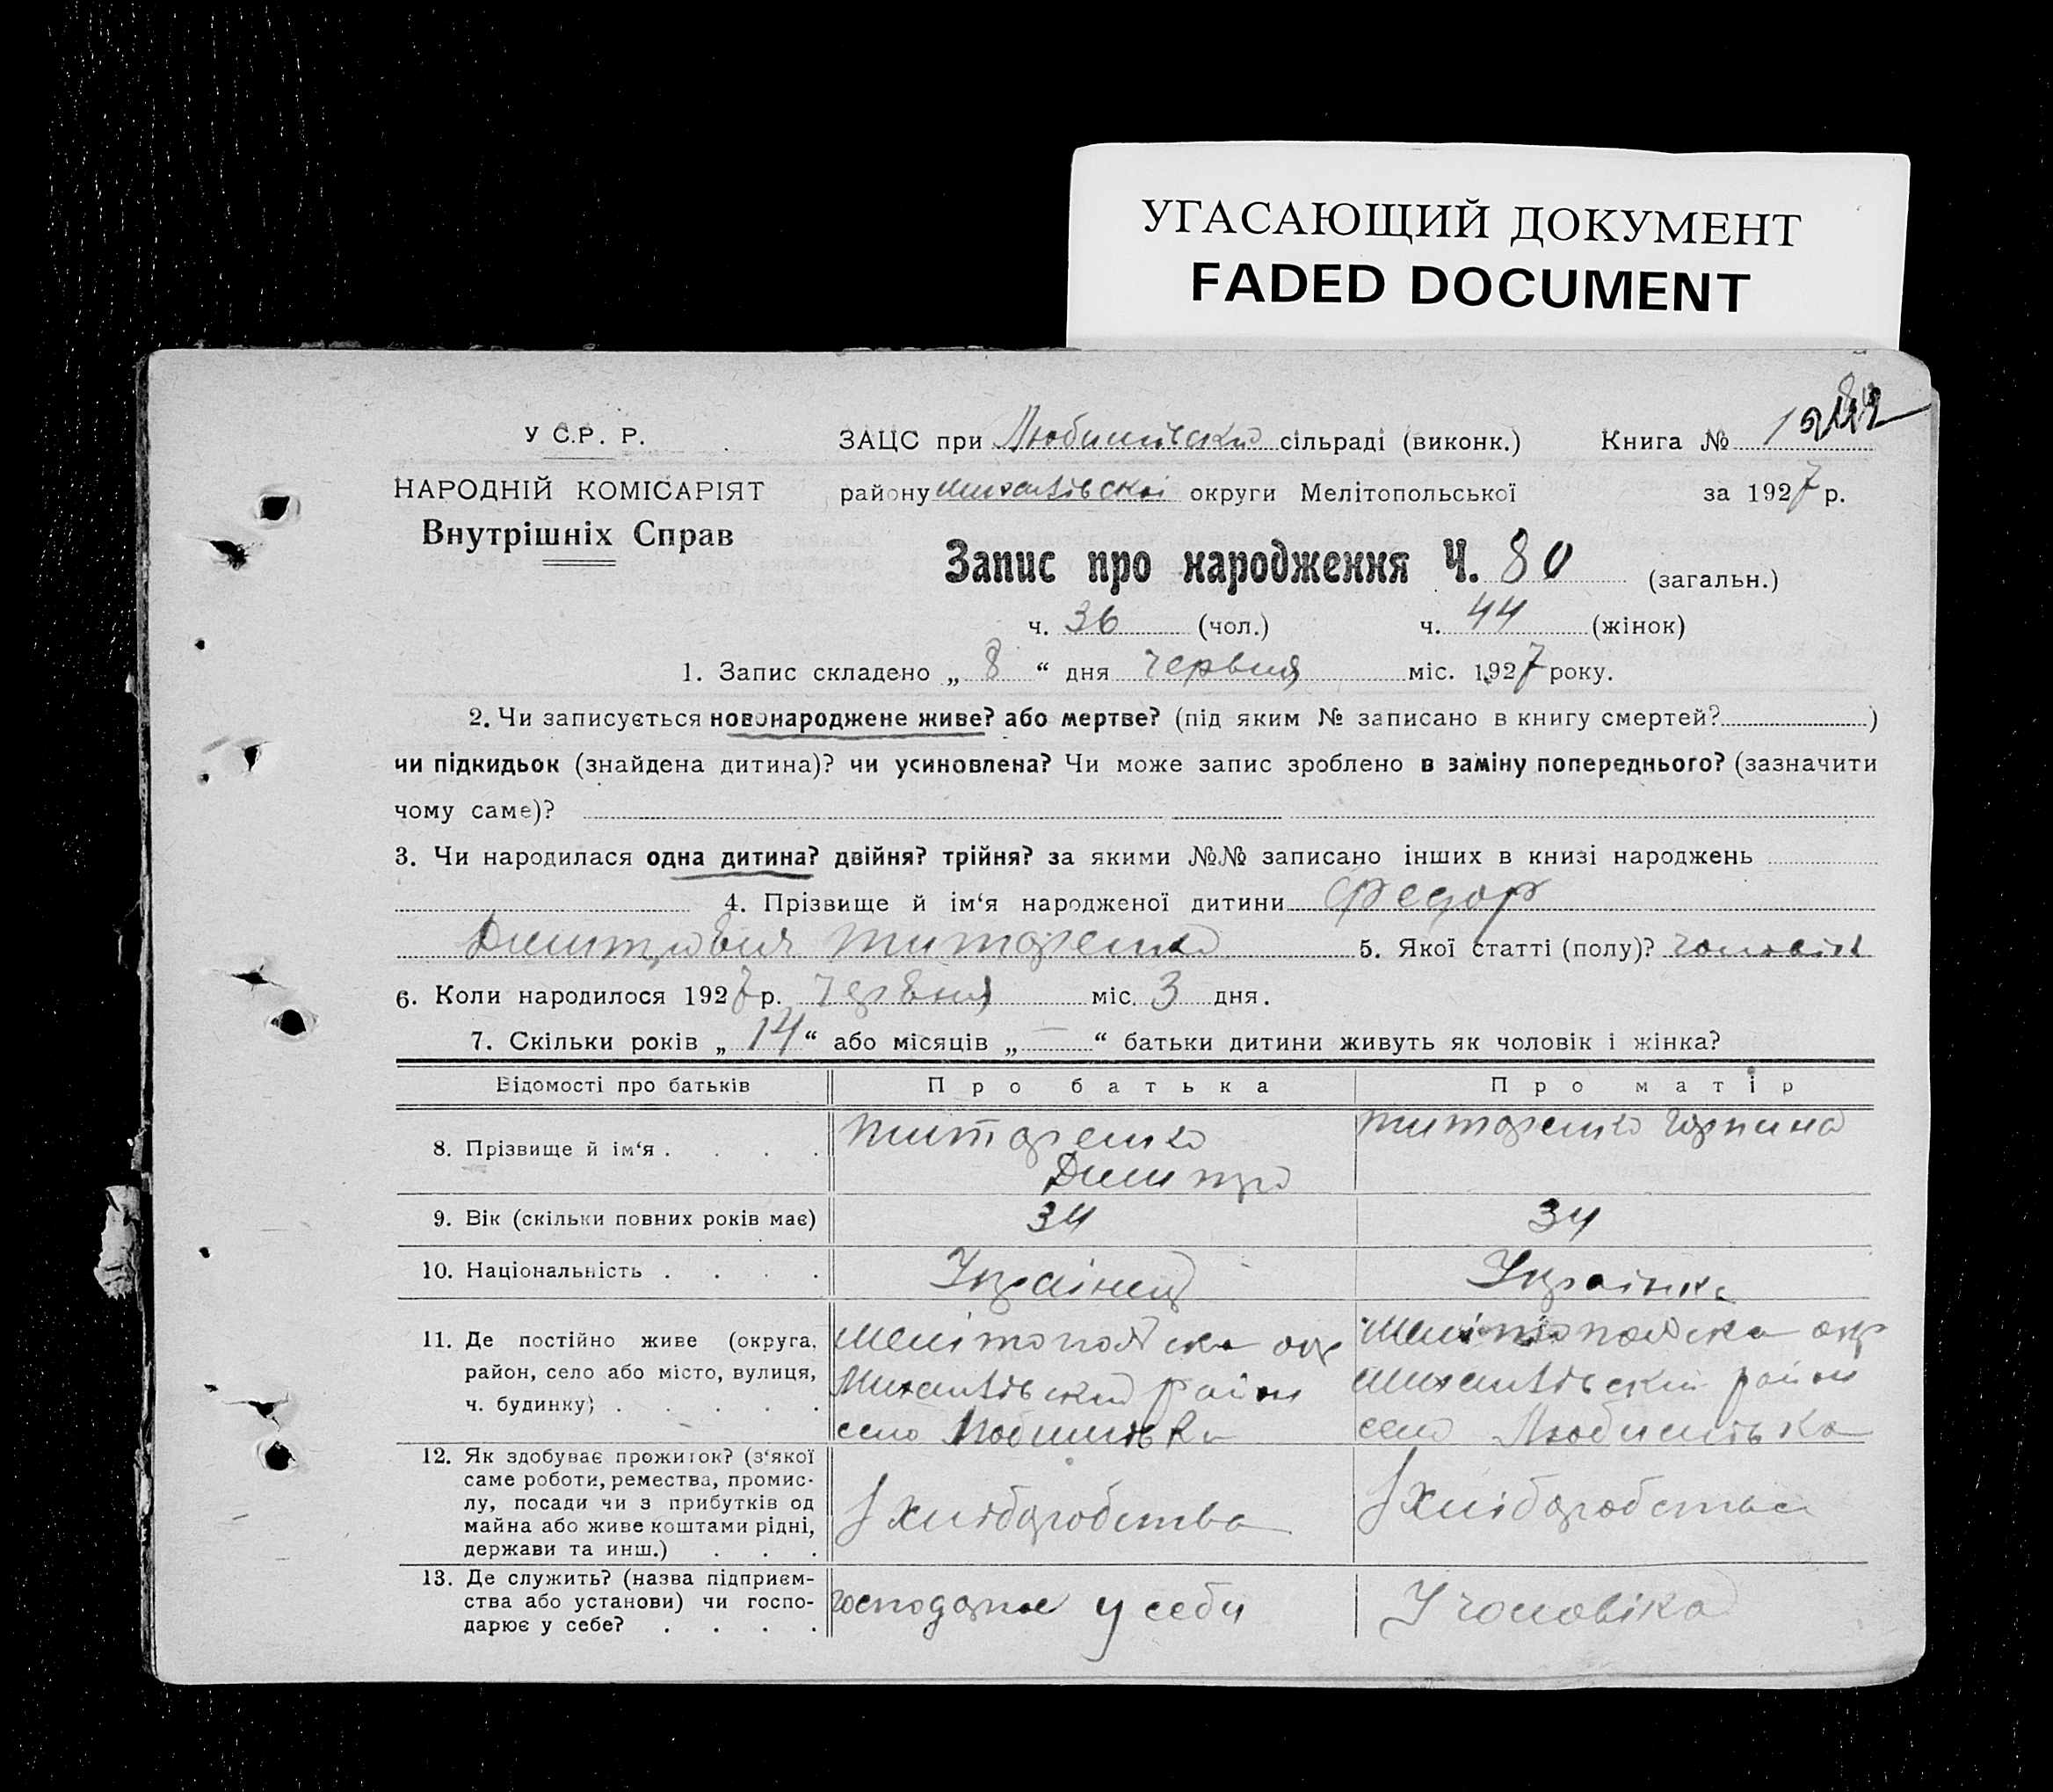 УГАСАЮЩИЙ ДОКУМЕНТ
FADED DOCUMENT
У С.Р. Р.
НАРОДНІЙ КОМІСАРІЯТ
Внутрішніх Справ
ЗАЦС при Любимівскій сільраді (виконк.) Книга №
району Михалівской округи Мелітопольської за 1927 р.
Запис про народження Ч. 80 (загальн.)
ч. 36 (чол.) ч. 44 (жінок)
1. Запис складено „ 8 “ дня червня міс. 1927 року.
2. Чи записується новонароджене живе? або мертве? (під яким № записано в книгу смертей? )
чи підкидьок (знайдена дитина)? чи усиновлена? Чи може запис зроблено в заміну попереднього? (зазначити
чому саме)?
3. Чи народилася одна дитина? двійня? трійня? за якими №№ записано інших в книзі народжень
4. Прізвище й ім‘я народженої дитини Федор
Дмитрович Титоренко 5. Якої статті (полу)? чоловік
6. Коли народилося 1927 р. червня міс. 3 дня.
7. Скільки років „ 14 “ або місяців „ — “ батьки дитини живуть як чоловік і жінка?
Відомості про батьків Про батька Про матір
8. Прізвище й ім‘я . . . .
Титоренко
Дмитро
Титоренко Горпина
9. Вік (скільки повних років має) 34 34
10. Національність . . . . Українец Українка
11. Де постійно живе (округа,
район, село або місто, вулиця,
ч. будинку) . . . . .
Мелітопольска окр
Михалівский район
село Любимівка
Мелітопольска окр
Михалівский район
село Любимівка
12. Як здобуває прожиток? (з‘якої
саме роботи, ремества, промис-
лу, посади чи з прибутків од
майна або живе коштами рідні,
держави та инш.) . . .
З хліборобства
З хліборобства
13. Де служить? (назва підприєм-
ства або установи) чи госпо-
дарює у себе? . . . .
господарює у себи
У чоловіка